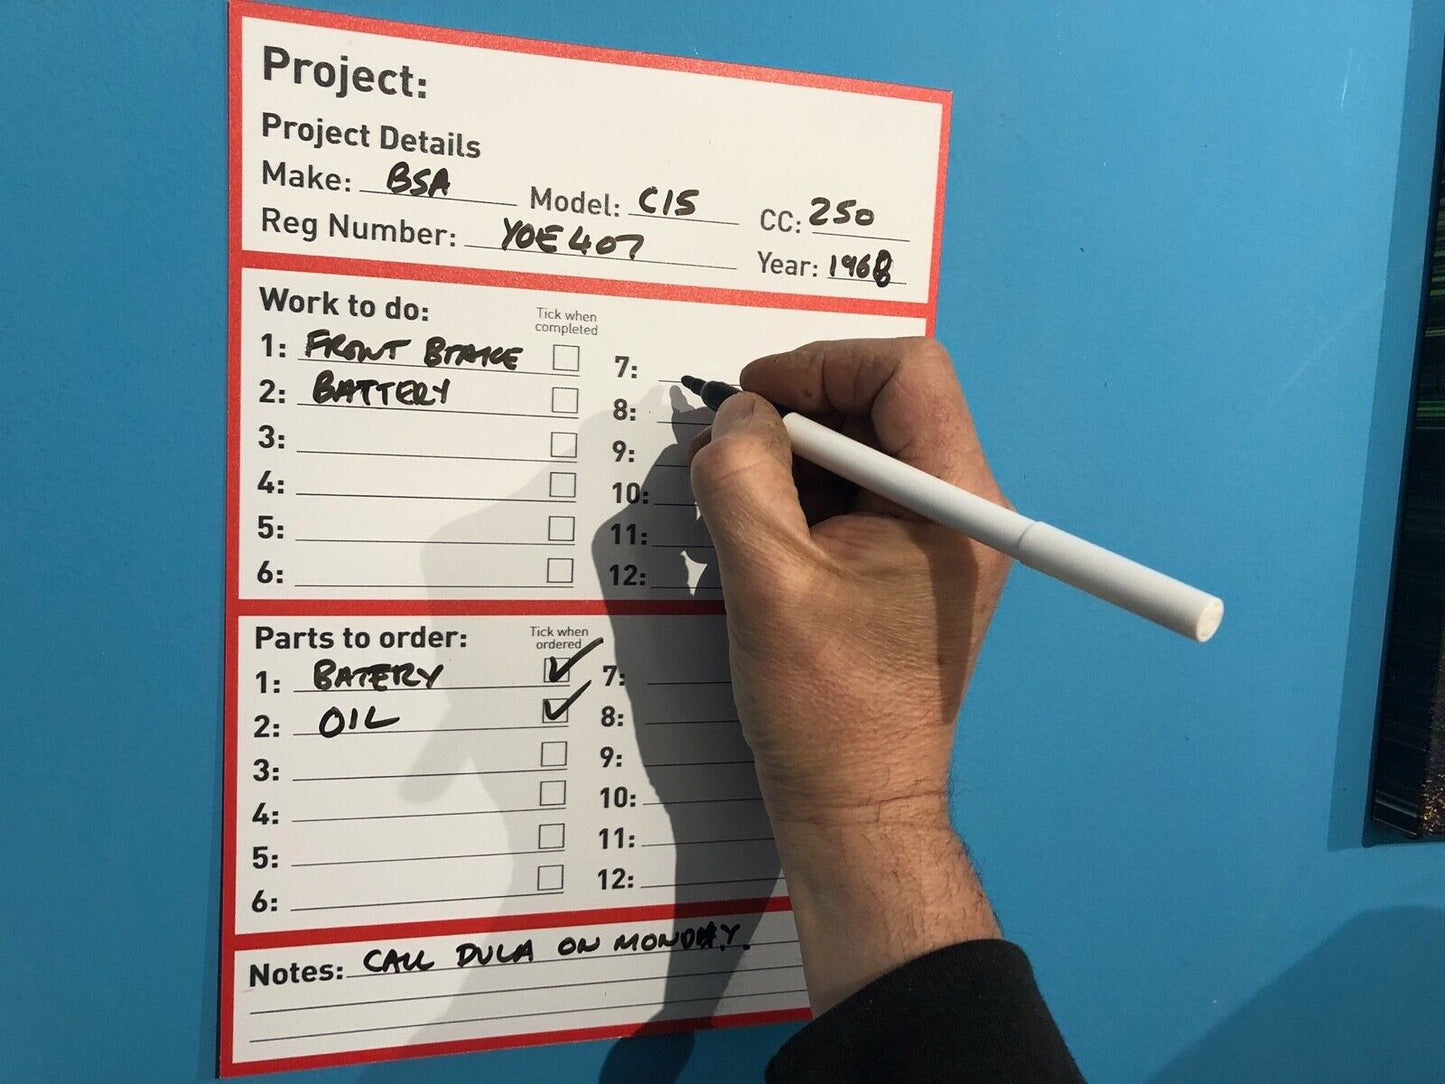 Project:
Project Details
Make: BSA Model: C15 CC: 250
Reg Number: YOE 407 Year: 1968
Work to do: Tick when completed
1: FRONT BRAKE 7:
2: BATTERY 8:
3: 9:
4: 10:
5: 11:
6: 12:
Parts to order: Tick when ordered
1: BATERY 7:
2: OIL 8:
3: 9:
4: 10:
5: 11:
6: 12:
Notes: CALL DULA ON MONDAY.